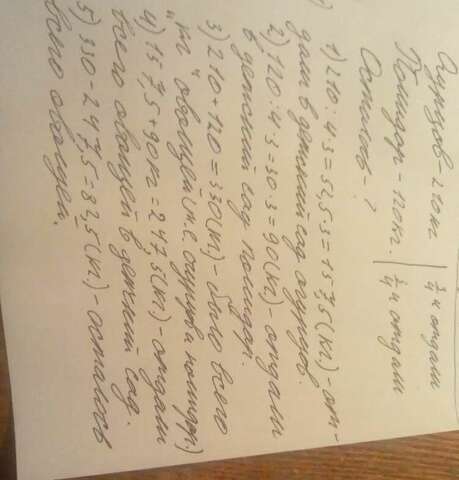 Огурцов - 210 кг. | 3/4 ч отдали
Помидор - 120 кг. | 3/4 ч отдали
Осталось - ?
1) 210 : 4·3 = 52,5·3 = 157,5 (кг) - от-
дали в детский сад огурцов.
2) 120 : 4·3 = 30·3 = 90 (кг) - отдали
в детский сад помидор.
3) 210 + 120 = 330 (кг) - было всего
кг овощей (т.е. огурцов и помидор)
4) 157,5 + 90 кг = 247,5 (кг) - отдали
всего овощей в детский сад.
5) 330 - 247,5 = 82,5 (кг) - осталось
всего овощей.